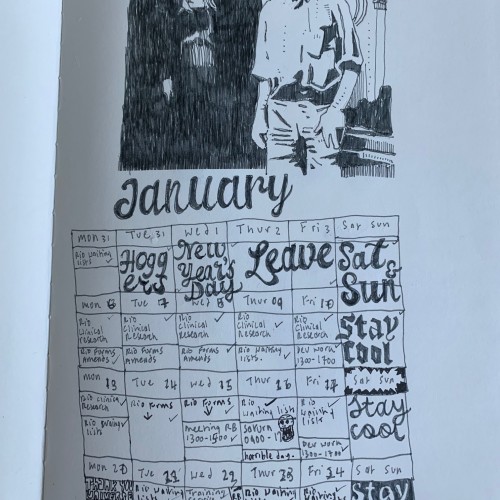 January
Mon 31 Tue 31 Wed 1 Thur 2 Fri 3 Sat Sun
Rio Waiting
lists
Hogg
ers
New
Year's
Day
Leave
Sat
&
Sun
Mon 6 Tue 7 Wed 8 Thur 09 Fri 10
Rio
Clinical
Research
Rio
Clinical
Research
Rio
Clinical
Research
Rio
Clinical
Research
Rio
Clinical
Research
Stay
cool
Rio Forms
Amends
Rio Forms
Amends
Rio Forms
Amends
Rio Waiting
lists.
Dev work
1300-1700
Mon 13 Tue 14 Wed 15 Thur 16 Fri 17 Sat Sun
Rio Clinical
Research
Rio Forms
Rio Forms
Rio
Waiting lists
Rio
Waiting
lists
Stay
cool
Rio
lists
Meeting RB
1300-1500
Saturn
0900-17
horrible day.
Dev work
1300-1700
Mon 20 Tue 21 Wed 22 Thur 23 Fri 24 Sat Sun
Thank your
universe
Rio Waiting
Training
Rio Waiting
Rio
Waiting
Stay